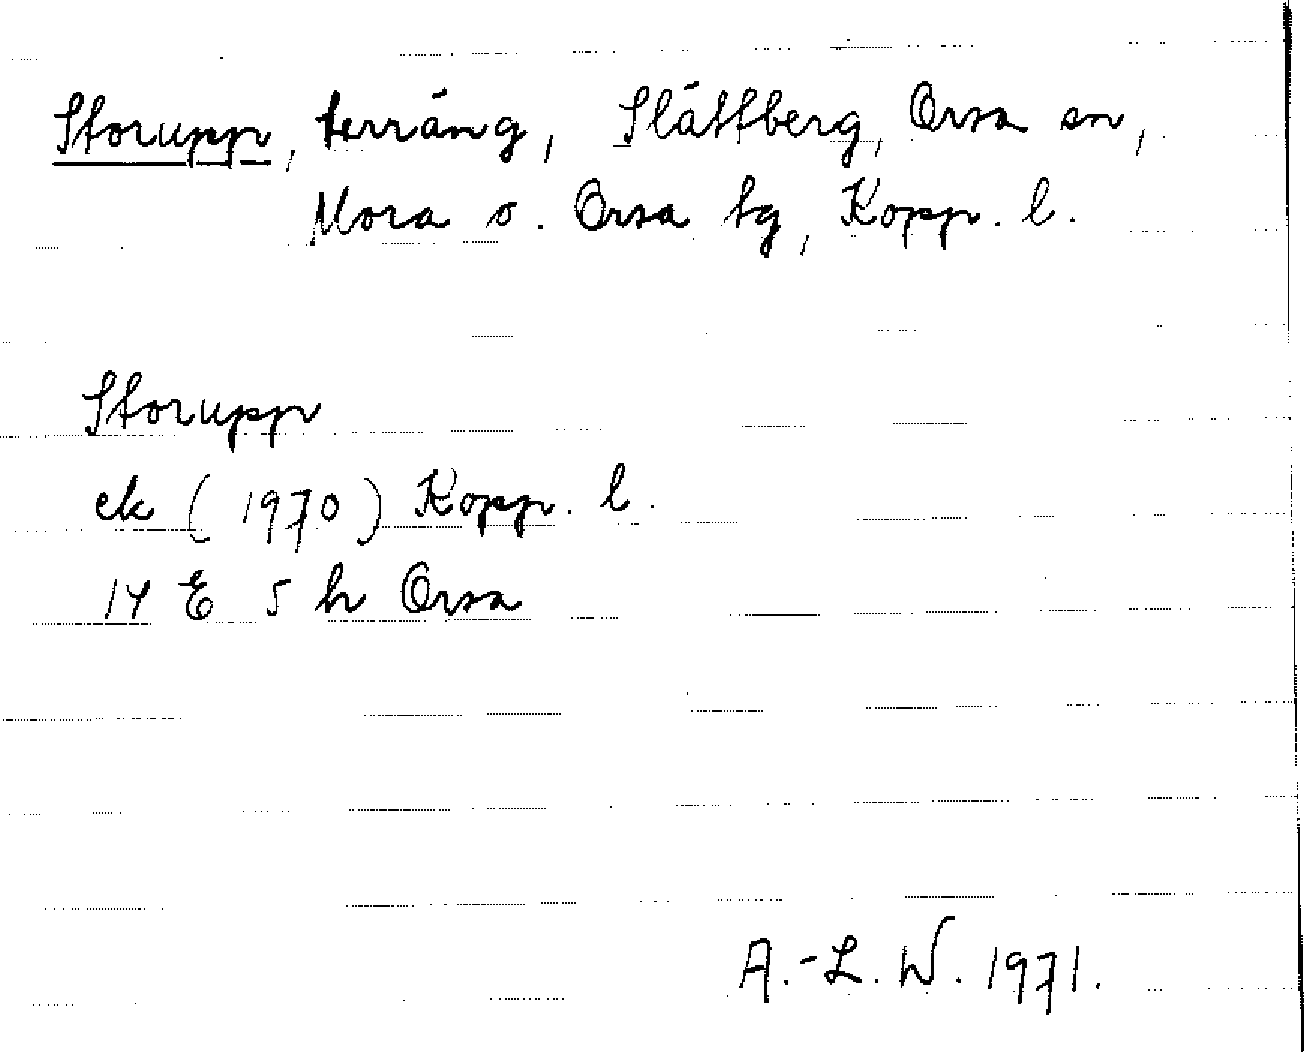 Storupp, terräng, Slättberg, Orsa sn,
Mora o. Orsa tg, Kopp. l.
Storupp
ek (1970) Kopp. l.
14 E 5 h Orsa
A.-L. W. 1971.